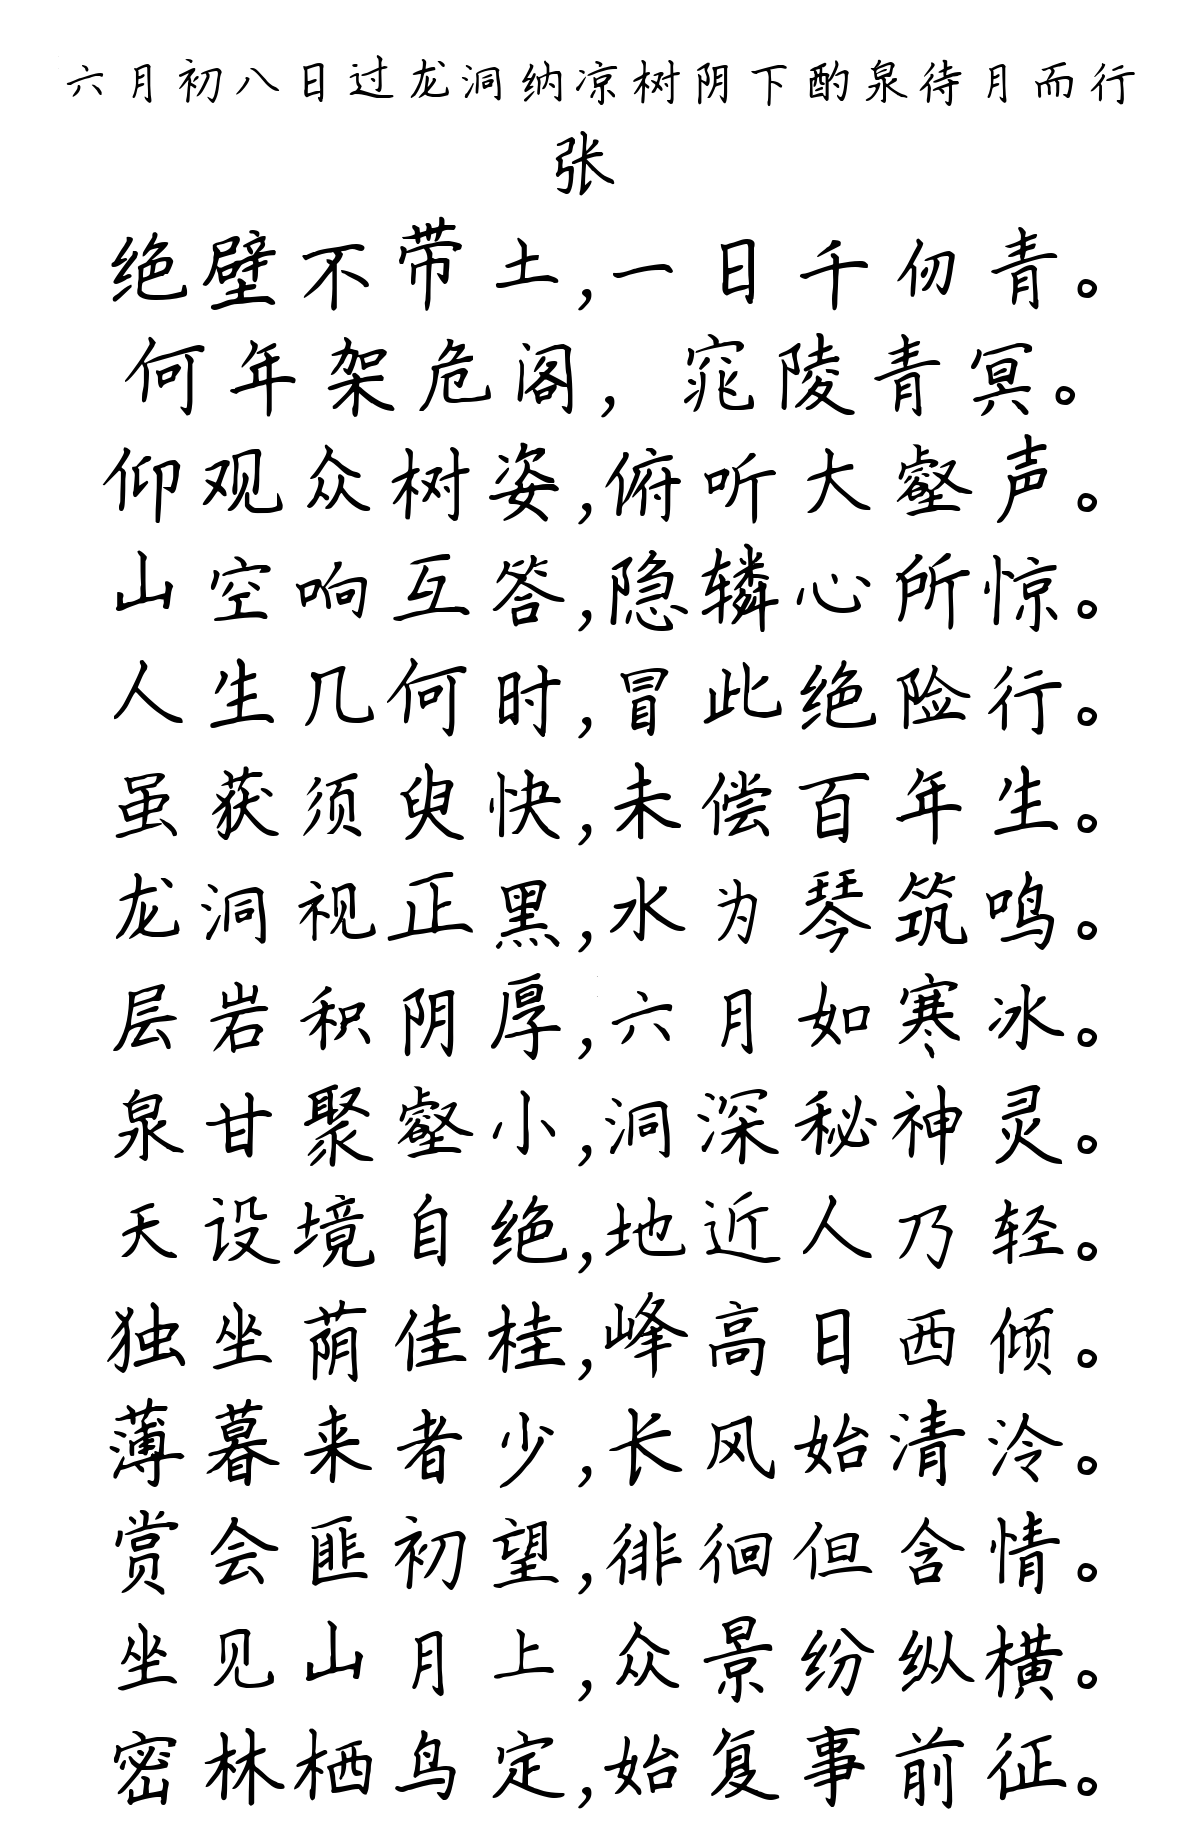 六月初八日过龙洞纳凉树阴下酌泉待月而行
张
绝壁不带土,一日千仞青。
何年架危阁,窕陵青冥。
仰观众树姿,俯听大壑声。
山空响互答,隐辚心所惊。
人生几何时,冒此绝险行。
虽获须臾快,未偿百年生。
龙洞视正黑,水为琴筑鸣。
层岩积阴厚,六月如寒冰。
泉甘聚壑小,洞深秘神灵。
天设境自绝,地近人乃轻。
独坐荫佳桂,峰高日西倾。
薄暮来者少,长风始清泠。
赏会匪初望,徘徊但含情。
坐见山月上,众景纷纵横。
密林栖鸟定,始复事前征。